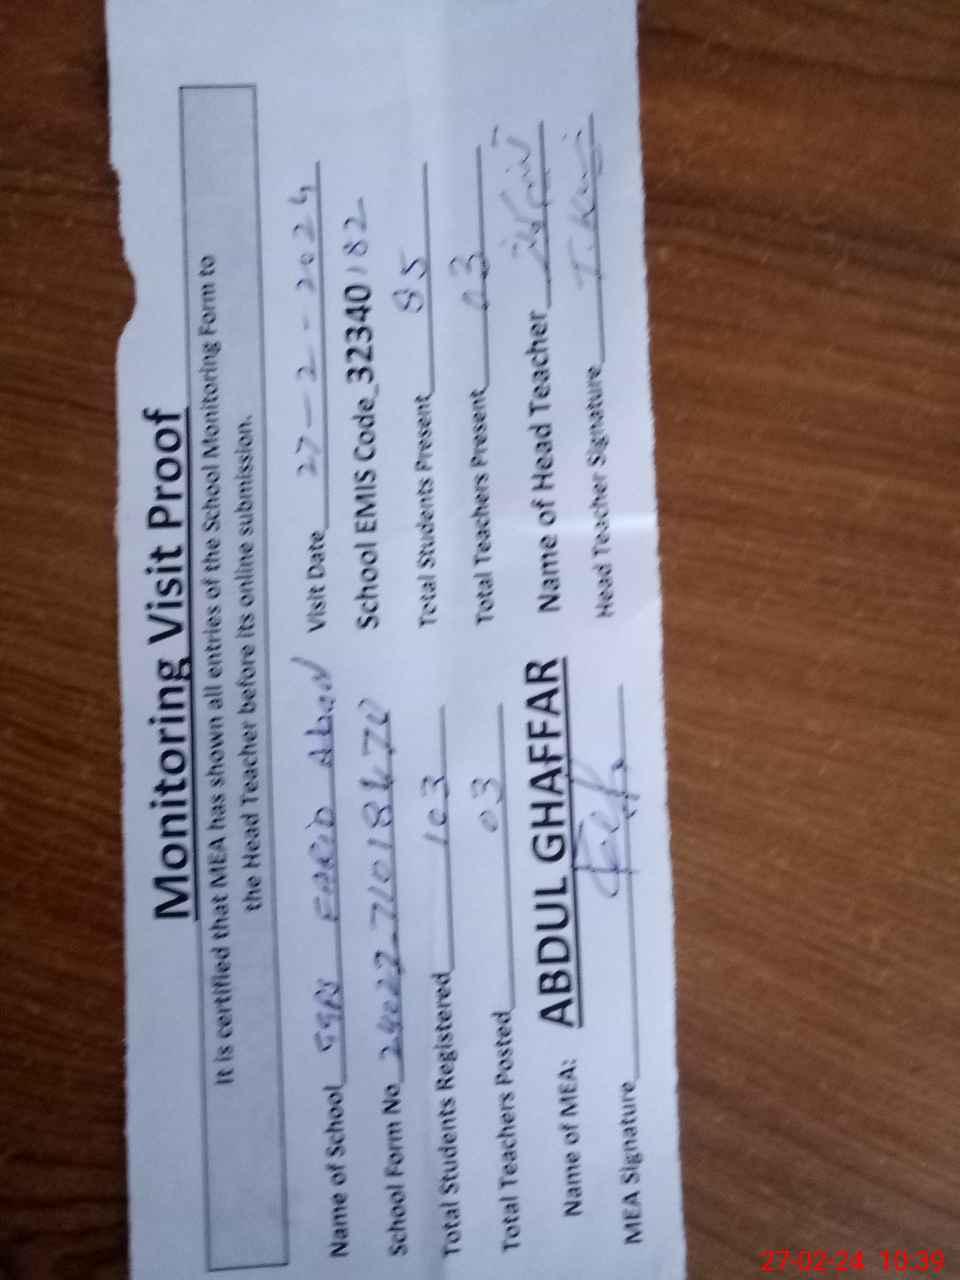 Monitoring Visit Proof
It is certified that MEA has shown all entries of the School Monitoring Form to
the Head Teacher before its online submission.
Name of School FARID Abad Visit Date 27-2-2024
School Form No School EMIS Code_32340182
Total Students Registered 103 Total Students Present 85
Total Teachers Posted 03 Total Teachers Present 03
Name of MEA: ABDUL GHAFFAR Name of Head Teacher
MEA Signature Head Teacher Signature
27-02-24 10:39